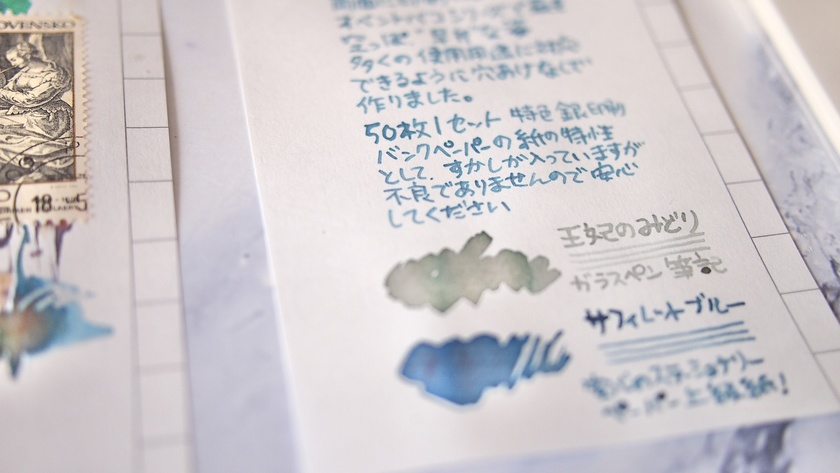 OVENSKO
18
空っぽ
多くの使用用途に対応
できるように穴あけなしで
作りました。
50枚1セット 特色銀印刷
バンクペーパーの紙の特性
として、すかしが入っていますが
不良でありませんので安心
してください
王妃のみどり
ガラスペン筆記
サフィレットブルー